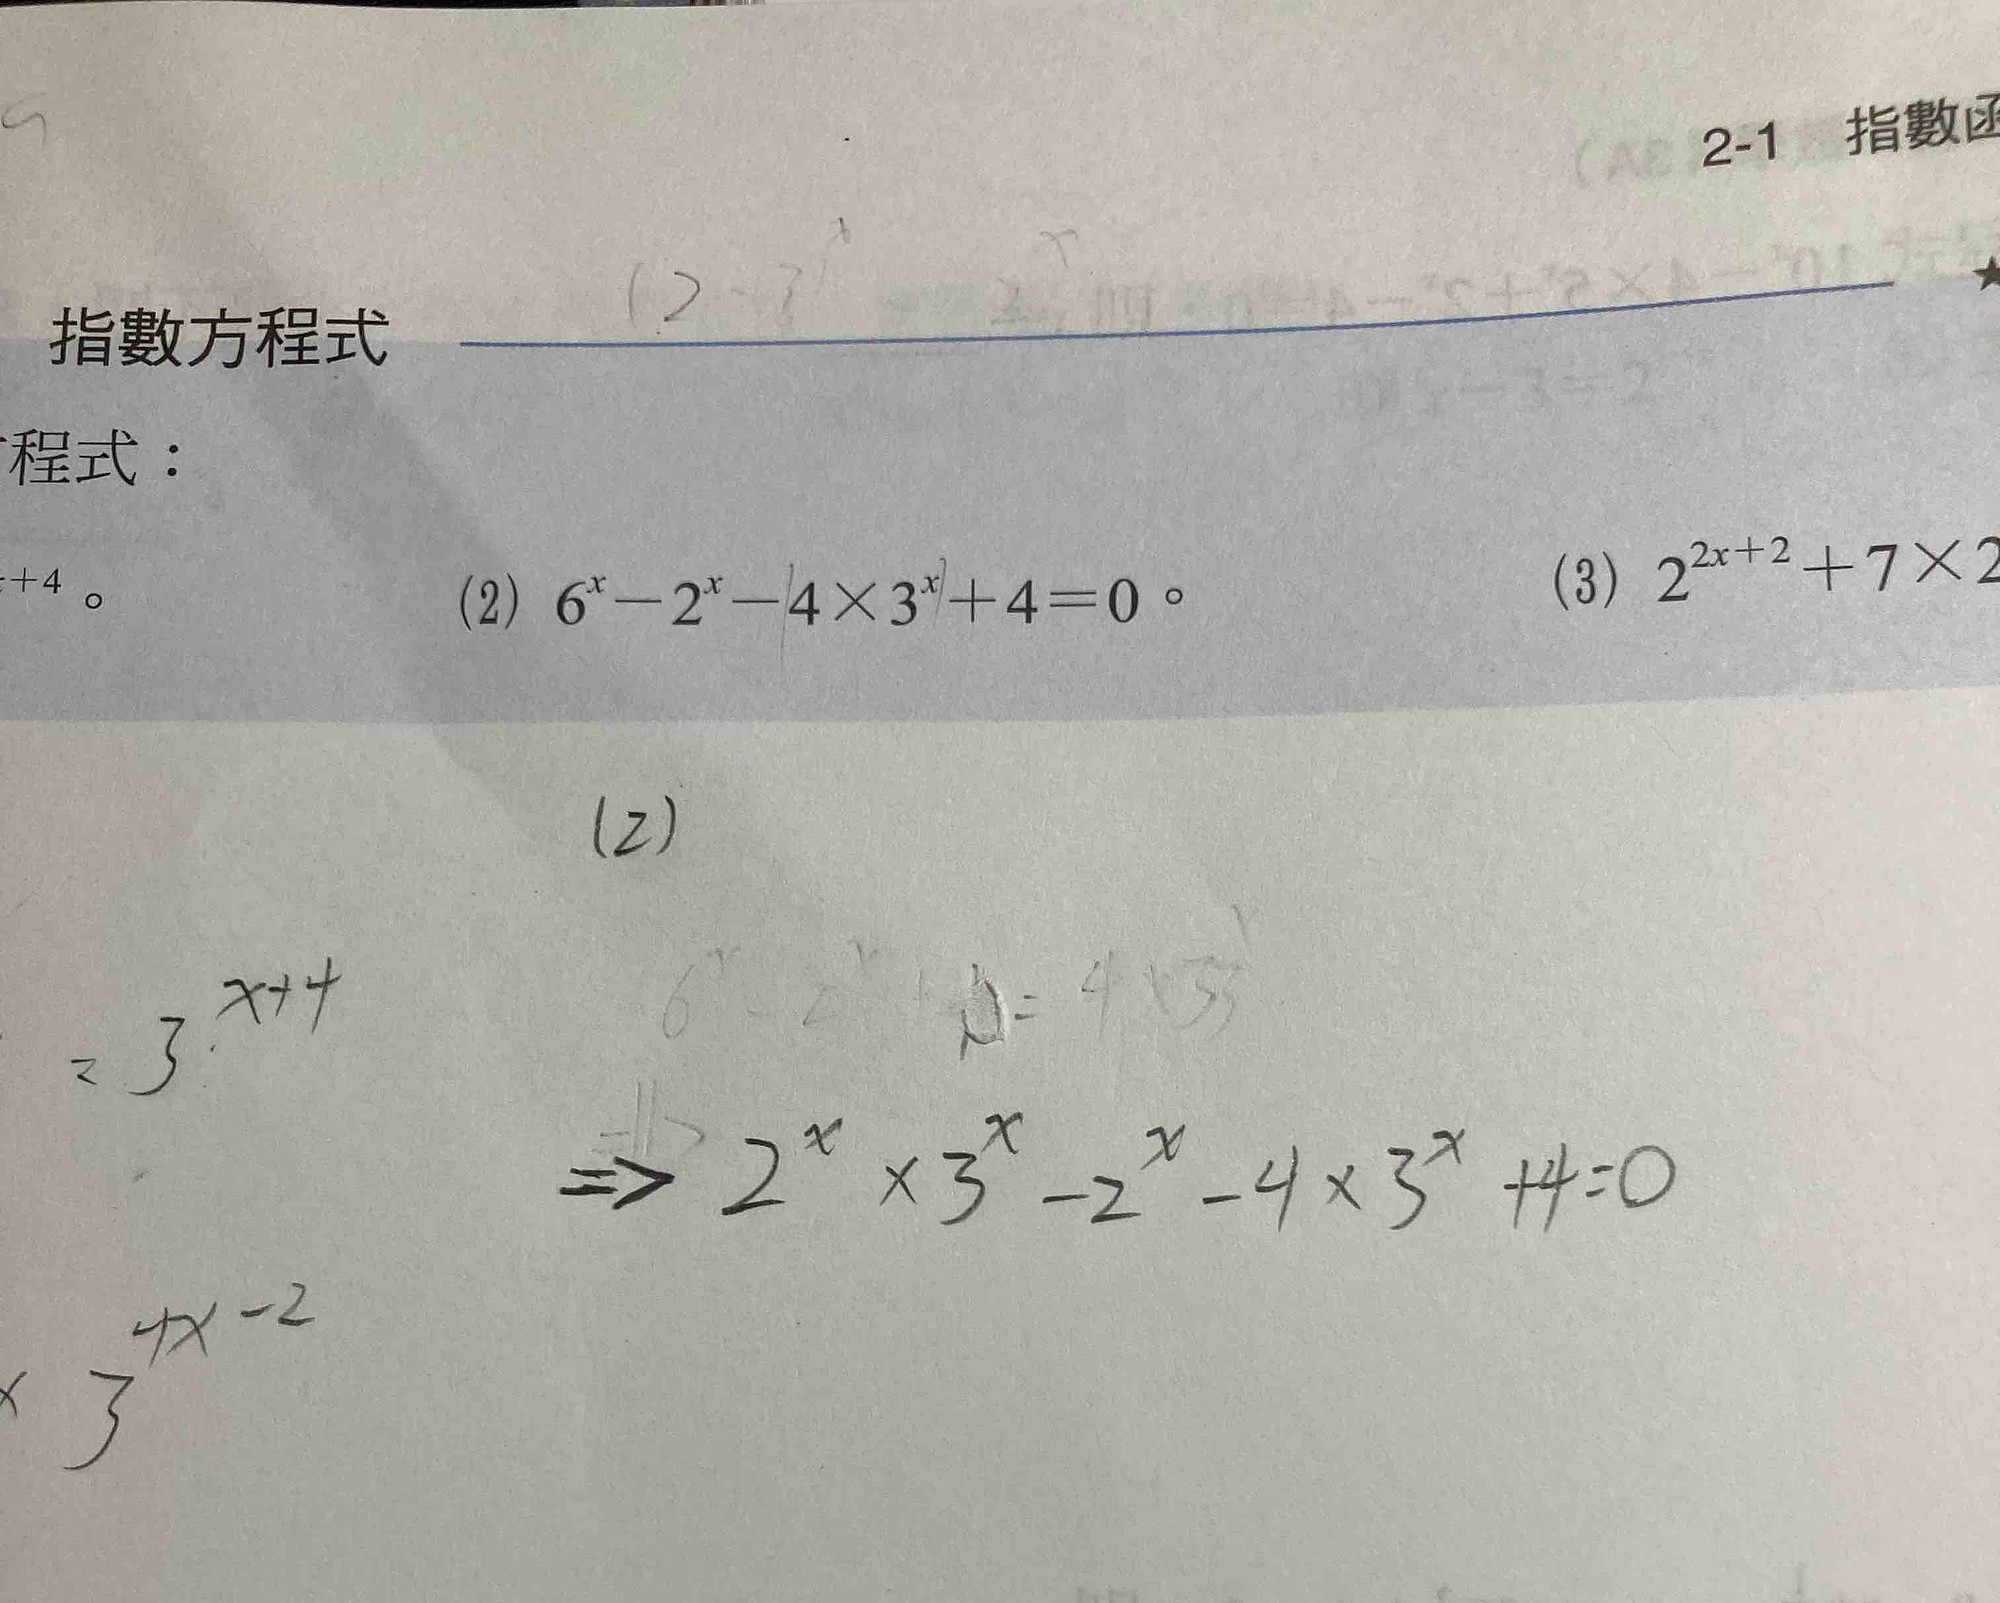 2-1 指數函
指數方程式
程式：
+4。
(2) 6ˣ－2ˣ－4×3ˣ＋4＝0。
(3) 2²ˣ⁺²＋7×2
(2)
6ˣ - 2ˣ + = 4×3ˣ
= 3ˣ⁺⁴
=> 2ˣ × 3ˣ - 2ˣ - 4 × 3ˣ + 4 = 0
× 3⁴ˣ⁻²